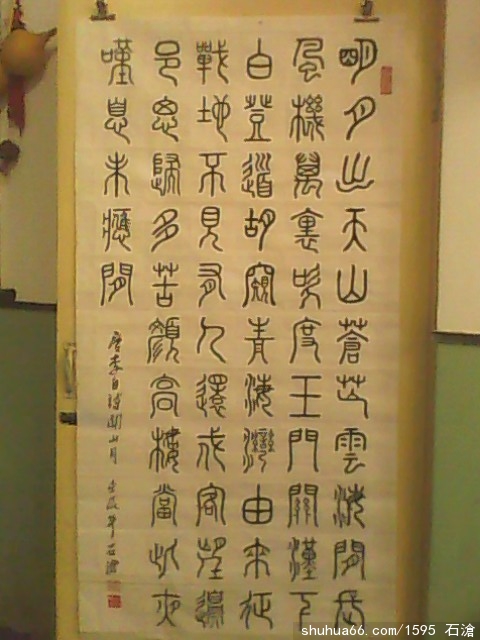 明月出天山蒼茫雲海間長
風機萬裏吹度玉門關漢下
白登道胡窺青海灣由來征
戰地不見有人還戍客望邊
邑思歸多苦顏高樓當此夜
嘆息未應閒
唐李白詩關山月 壬辰年 石滄
shuhua66.com/1595 石滄